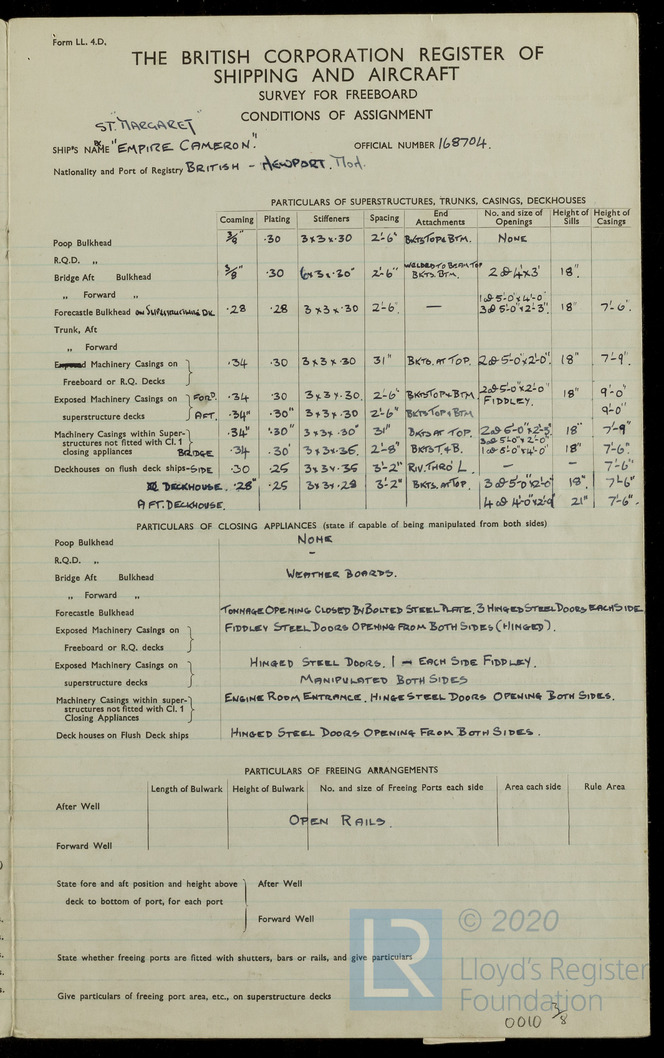 Form LL. 4.D.
THE BRITISH CORPORATION REGISTER OF
SHIPPING AND AIRCRAFT
SURVEY FOR FREEBOARD
CONDITIONS OF ASSIGNMENT
"ST. MARGARET"
SHIP'S NAME "EMPIRE CAMERON". OFFICIAL NUMBER 168704.
Nationality and Port of Registry BRITISH - NEWPORT. Mon.
PARTICULARS OF SUPERSTRUCTURES, TRUNKS, CASINGS, DECKHOUSES
Coaming Plating Stiffeners Spacing End Attachments No. and size of Openings Height of Sills Height of Casings
Poop Bulkhead 3/8" .30 3x3x.30 2'-6" BKTS TOP & BTM. NONE
R.Q.D. „
Bridge Aft Bulkhead 3/8" .30 6x3x.30" 2'-6" WELDED TO BEAM TOP BKTS. BTM. 2 @ 4'x3' 18".
„ Forward „ 1 @ 5'-0"x4'-0"
Forecastle Bulkhead on SUPERSTRUCTURE DK .28 .28 3x3x.30 2'-6". — 3 @ 5'-0"x2'-3". 18" 7'-6".
Trunk, Aft
„ Forward
Exposed Machinery Casings on .34 .30 3x3x.30 31" BKTS. AT TOP. 2 @ 5'-0"x2'-0". 18" 7'-9".
Freeboard or R.Q. Decks
Exposed Machinery Casings on FOR'D. .34 .30 3x3x.30. 2'-6" BKTS TOP & BTM 2 @ 5'-0"x2'-0" FIDDLEY. 18" 9'-0"
superstructure decks AFT. .34" .30" 3x3x.30 2'-6" BKTS TOP & BTM 9'-0"
Machinery Casings within Super- .34" .30" 3x3x.30" 31" BKTS AT TOP. 2 @ 5'-0"x2'-3" 18" 7'-9"
structures not fitted with Cl. 1 3 @ 5'-0"x2'-0"
closing appliances BRIDGE .34 .30' 3x3x.35. 2'-8" BKTS T. & B. 1 @ 5'-0"x2'-0" 18" 7'-6".
Deckhouses on flush deck ships-SIDE .30 .25 3x3x.35 3'-2" RIV. THRO' L. — — 7'-6"
DECKHOUSE. .28" .25 3x3x.28 3'-2" BKTS. AT TOP. 3 @ 5'-0"x2'-0" 18". 7'-6"
AFT. DECKHOUSE. 4 @ 4'-0"x2'-9" 21" 7'-6".
PARTICULARS OF CLOSING APPLIANCES (state if capable of being manipulated from both sides)
Poop Bulkhead NONE
R.Q.D. „ -
Bridge Aft Bulkhead WEATHER BOARDS.
„ Forward „
Forecastle Bulkhead TONNAGE OPENING CLOSED BY BOLTED STEEL PLATE. 3 HINGED STEEL DOORS EACH SIDE
Exposed Machinery Casings on FIDDLEY STEEL DOORS OPENING FROM BOTH SIDES (HINGED).
Freeboard or R.Q. decks
Exposed Machinery Casings on HINGED STEEL DOORS. 1 - EACH SIDE FIDDLEY.
superstructure decks MANIPULATED BOTH SIDES
Machinery Casings within super- ENGINE ROOM ENTRANCE. HINGE STEEL DOORS OPENING BOTH SIDES.
structures not fitted with Cl. 1
Closing Appliances
Deck houses on Flush Deck ships HINGED STEEL DOORS OPENING FROM BOTH SIDES.
PARTICULARS OF FREEING ARRANGEMENTS
Length of Bulwark Height of Bulwark No. and size of Freeing Ports each side Area each side Rule Area
After Well
OPEN RAILS.
Forward Well
State fore and aft position and height above After Well
deck to bottom of port, for each port
Forward Well
State whether freeing ports are fitted with shutters, bars or rails, and give particulars
Give particulars of freeing port area, etc., on superstructure decks
LR © 2020
Lloyd's Register
Foundation
0010 3/8